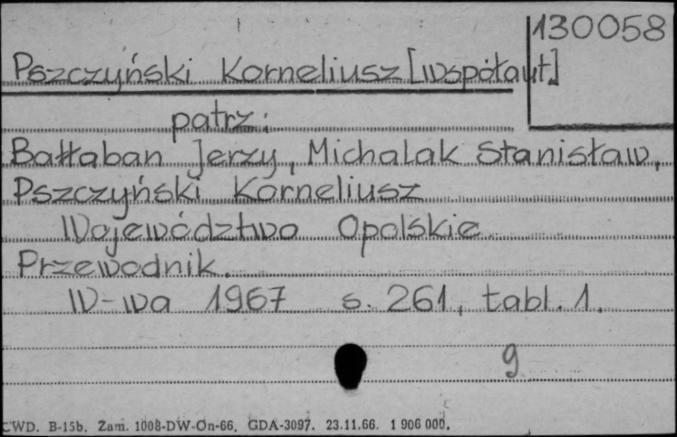 130058
Pszczyński Korneliusz [współaut.]
patrz:
Bałłaban Jerzy, Michalak Stanisław,
Pszczyński Korneliusz
Województwo Opolskie
Przewodnik.
W-wa 1967 s. 261, tabl. 1.
9
CWD. B-15b. Zam. 1008-DW-On-66. GDA-3097. 23.11.66. 1 906 000.